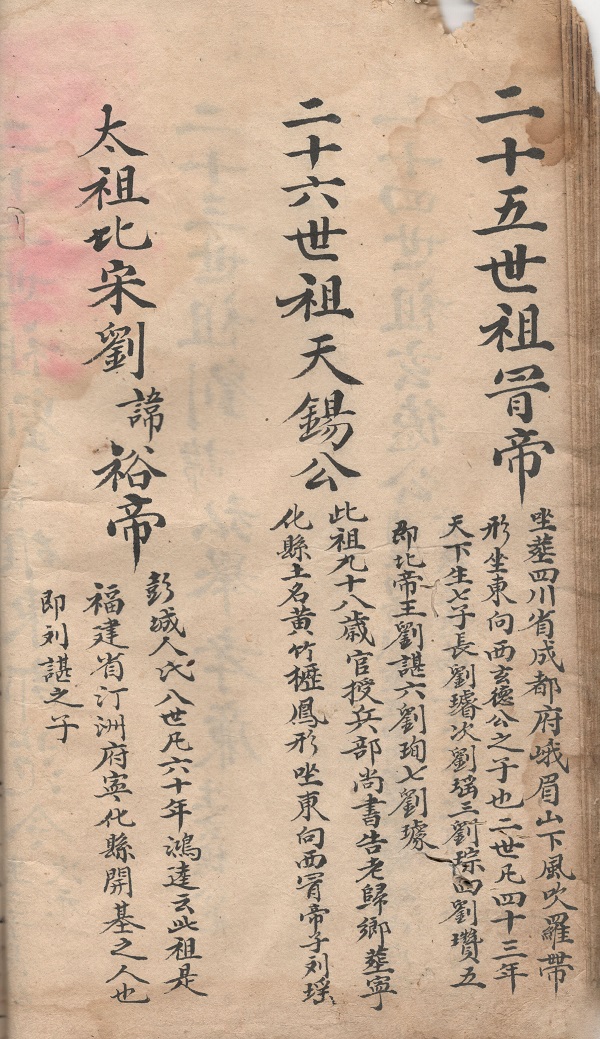 二十五世祖肎帝
坐塟四川省成都府峨眉山下風吹羅帶
形坐東向西玄德公之子也二世凡四十三年
天下生七子長劉璿次劉瑶三劉琮四劉瓚五
即北帝王劉諶六劉珣七劉璩
二十六世祖天錫公
此祖九十八歲官授兵部尚書告老歸鄉塟寧
化縣土名黄竹櫪鳳形坐東向西肎帝子刘瑶
太祖北宋劉諱裕帝
彭城人氏八世凡六十年鴻逵云此祖是
福建省汀洲府寧化縣開基之人也
即刘諶之子